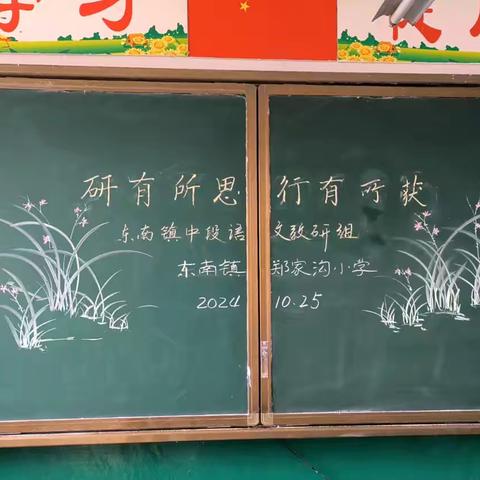 研有所思 行有所获
东南镇中段语文教研组
东南镇 郑家沟小学
2024 10.25